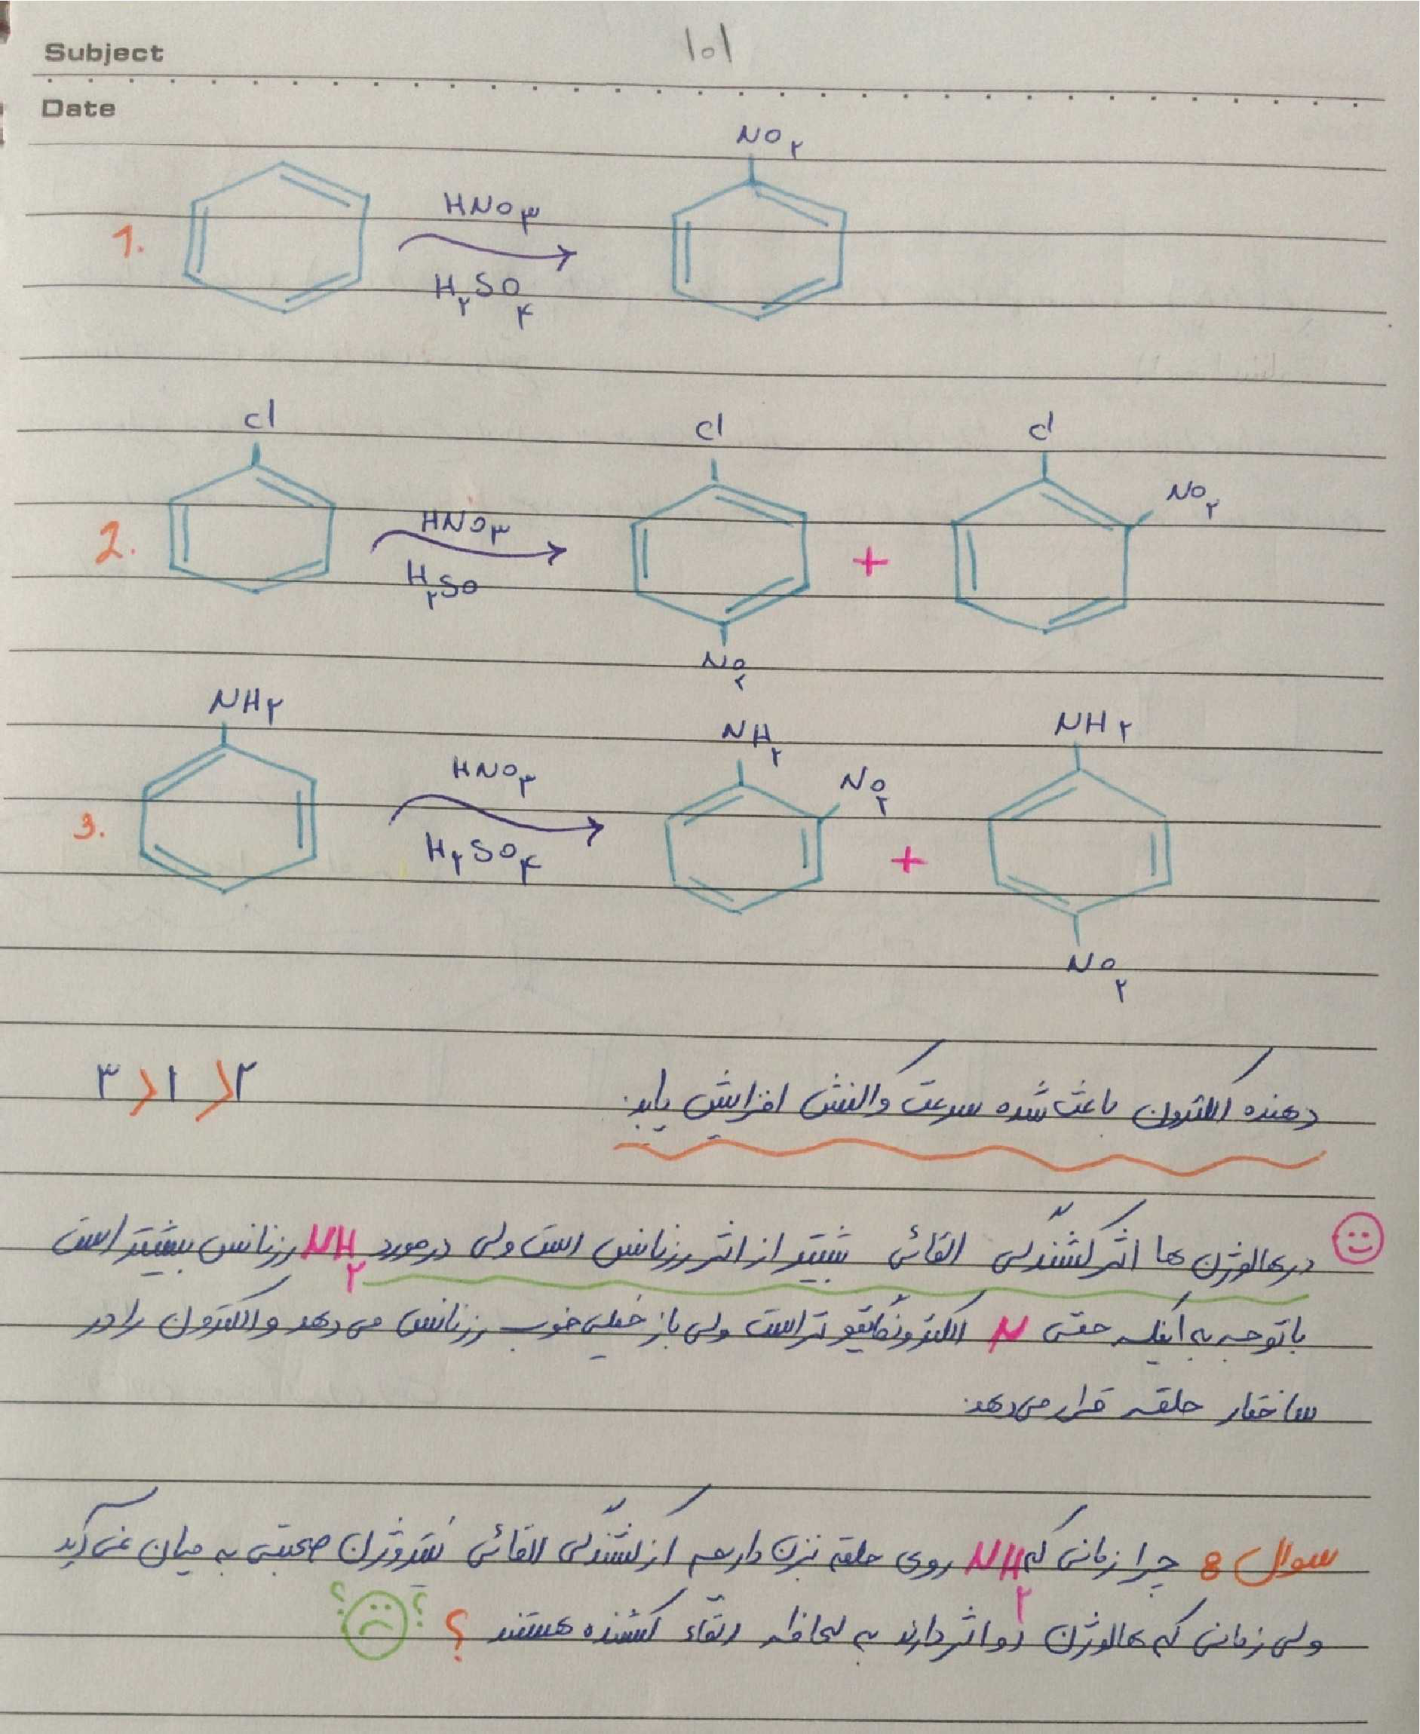 Subject
۱۰۱
Date
NO۲
1.
HNO۳
H۲SO۴
Cl
Cl
Cl
NO۲
2.
HNO۳
H۲SO
+
NO۲
NH۲
NH۲
NH۲
3.
HNO۳
H۲SO۴
NO۲
+
NO۲
دهنده الکترون باعث شده سرعت واکنش افزایش یابد.
۳ > ۱ > ۲
در هالوژن ها اثر کشندگی القائی بیشتر از اثر رزنانس است ولی درمورد NH۲ رزنانس بیشتر است
با توجه به اینکه حتی N الکترونگاتیو تر است ولی باز خیلی خوب رزنانس می دهد و الکترون را در
ساختار حلقه قرار می دهد.
سوال 8 چرا زمانی که NH۲ روی حلقه بنزن داریم از کشندگی القائی نیتروژن صحبتی به میان نمی آید
ولی زمانی که هالوژن دو اثر دارند به لحاظ القاء کشنده هستند ؟ ؟ ؟